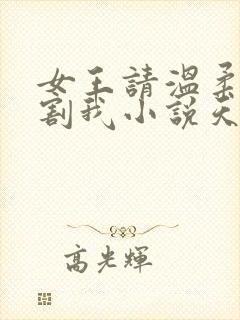 女王請溫柔
割我小說天
高光輝